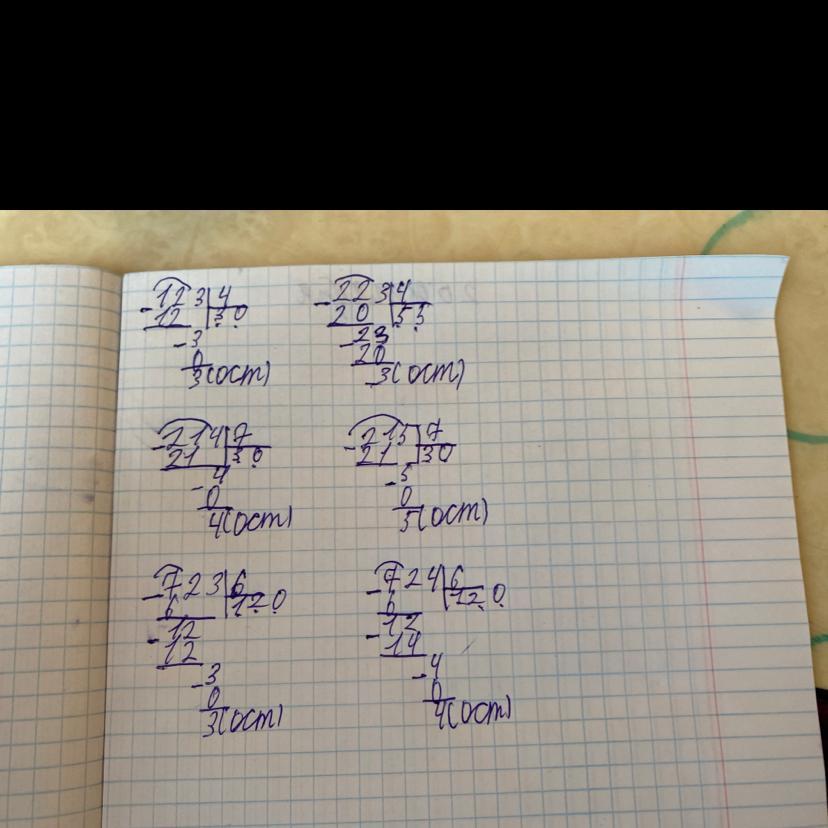 -123|4 -223|4
12 |30 20 |55
-3 -23
0 20
3(ост) 3(ост)
-214|7 -215|7
21 |30 21 |30
-4 -5
0 0
4(ост) 5(ост)
-723|6 -724|6
6 |120 6 |120
-12 -12
12 14
-3 -4
0 0
3(ост) 4(ост)